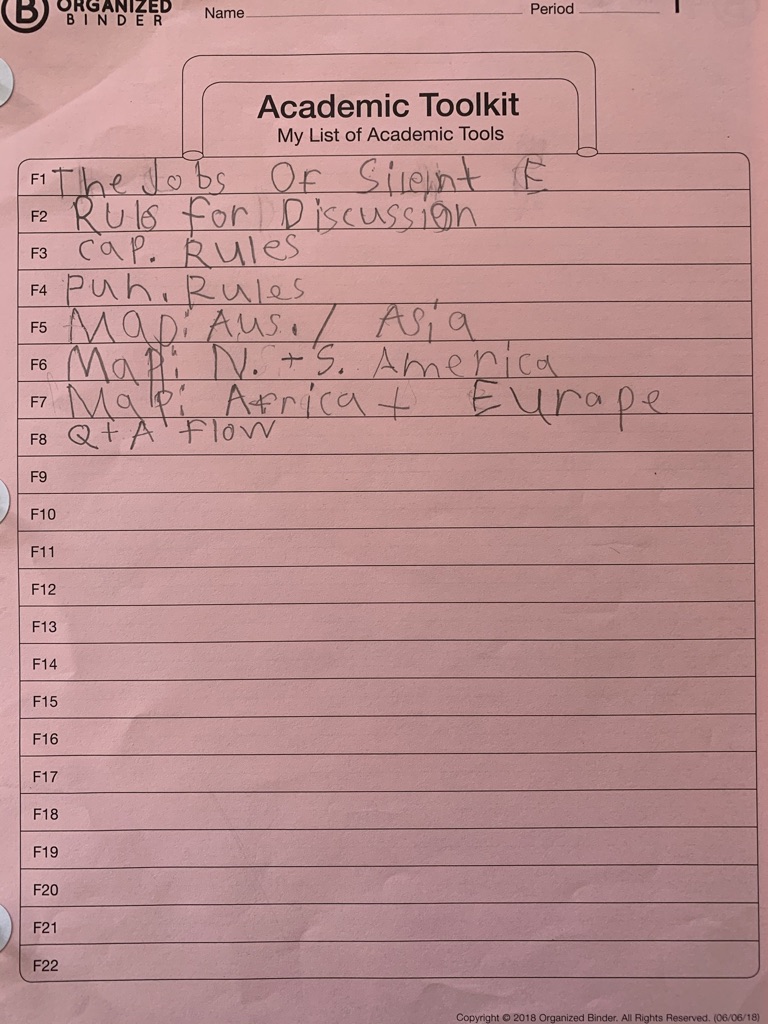 B ORGANIZED BINDER Name Period
Academic Toolkit
My List of Academic Tools
F1 The Jobs Of Silent E
F2 Ruls for Discussion
F3 Cap. Rules
F4 Pun. Rules
F5 Map: Aus. / Asia
F6 Map: N. + S. America
F7 Map: Africa + Eurape
F8 Q + A Flow
F9
F10
F11
F12
F13
F14
F15
F16
F17
F18
F19
F20
F21
F22
Copyright © 2018 Organized Binder. All Rights Reserved. (06/06/18)